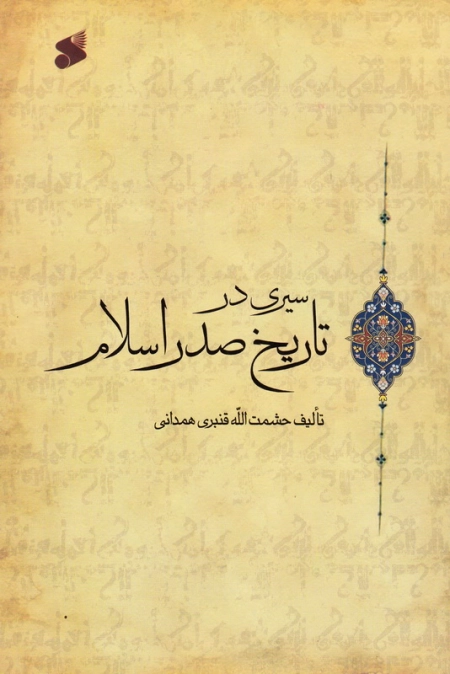 سیری در
تاریخ صدر اسلام
تألیف حشمت اللّه قنبری همدانی